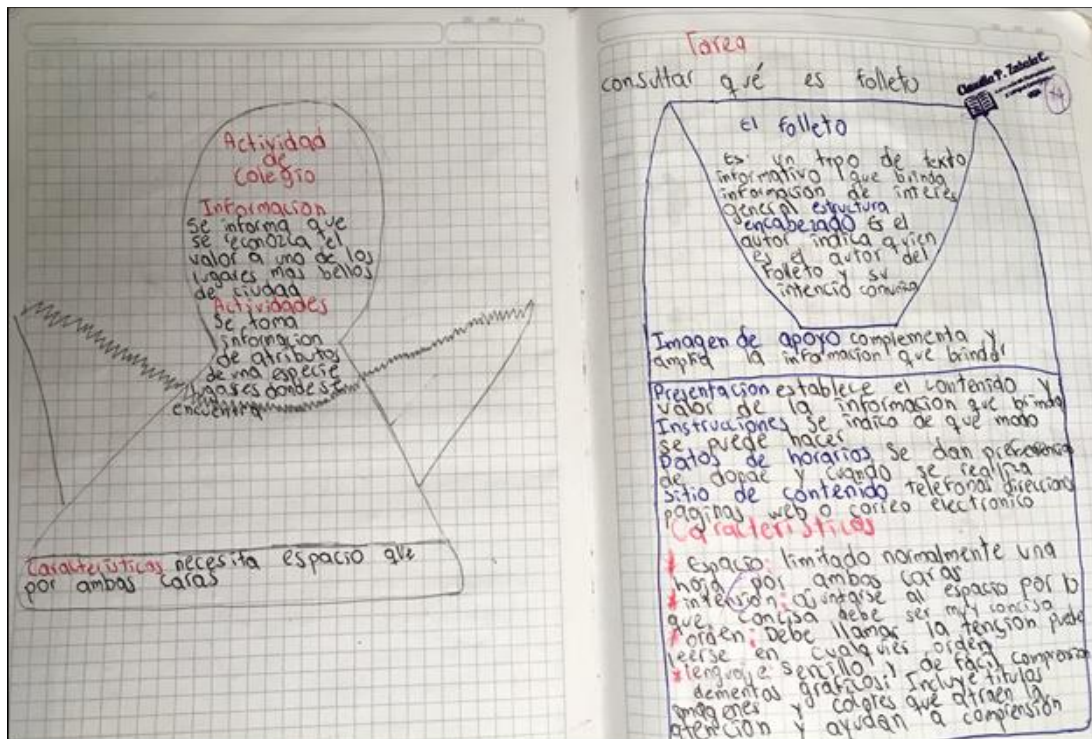 Actividad
de
Colegio
Informacion
Se informa que
se reconozca el
valor a uno de los
lugares mas bellos
de ciudad
Actividades
Se toma
informacion
de atributos
de una especie
donde se
encuentra
Características necesita espacio que
por ambas caras
Tarea
consultar qué es folleto
Claudia P. Zabala C.
El folleto
Es un tipo de texto
informativo que brinda
informacion de interes
general estructura
encabezado Es el
autor indica quien
es el autor del
Folleto y su
intenció
Imagen de apoyo complementa y
la informacion que brinda
Presentacion establece el contenido y
valor de la informacion que brinda
Instrucciones Se indica de que modo
se puede hacer
Datos de horarios Se dan
de donde y cuando se realiza
Sitio de contenido telefonos
paginas web o correo electronico
Caracteristicas
* Espacio: limitado normalmente una
por ambas caras
* intension: al espacio por lo
que concisa debe ser muy concisa
* orden: Debe llamar la tension puede
leerse en orden
* sencillo y de facil
graficos: Incluye titulos
imagenes y colores que atraen la
atencion y ayudan a comprension